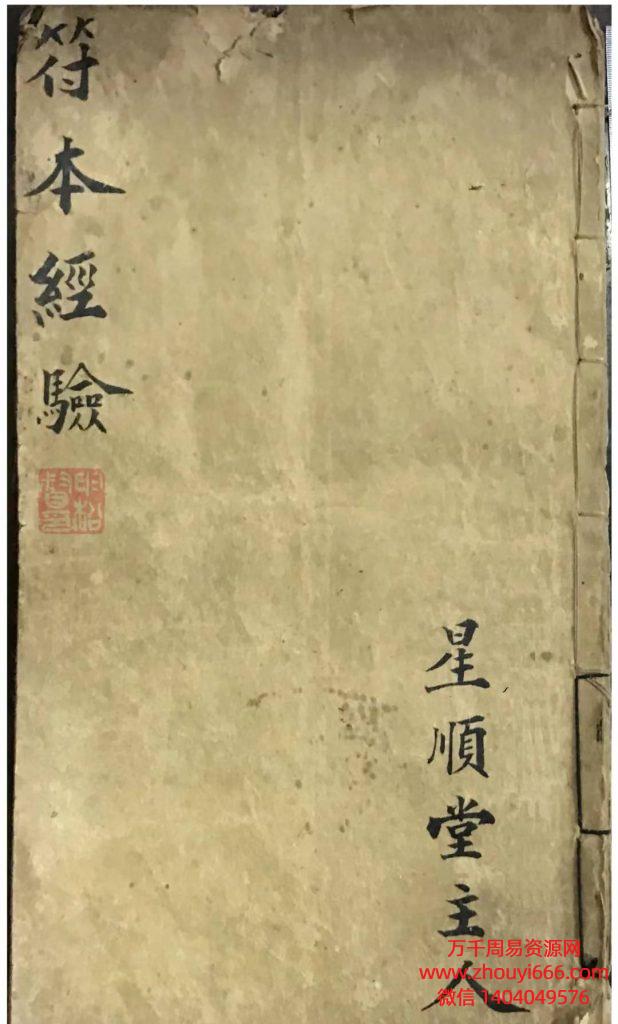 符本經驗
星順堂主人
万千周易资源网
www.zhouyi666.com
微信 1404049576